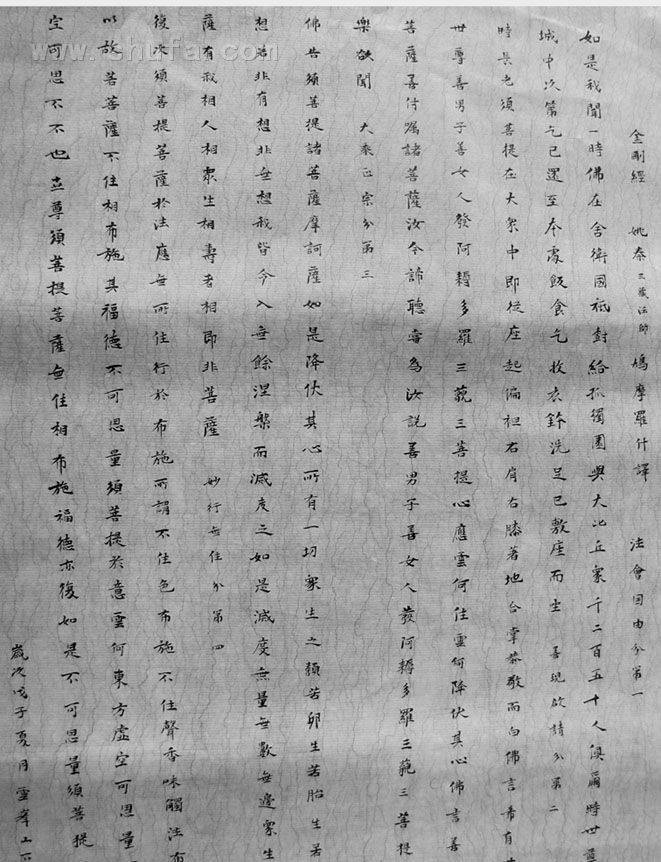 金剛經 姚秦三藏法師 鳩摩羅什譯 法會因由分第一
如是我聞一時佛在舍衛國祇樹給孤獨園與大比丘眾千二百五十人俱爾時世尊
城中次第乞已還至本處飯食乞收衣鉢洗足已敷座而坐 善現啟請分第二
時長老須菩提在大眾中即從座起偏袒右肩右膝著地合掌恭敬而白佛言希有
世尊善男子善女人發阿耨多羅三藐三菩提心應雲何住雲何降伏其心佛言善
菩薩善付囑諸菩薩汝今諦聽當為汝說善男子善女人發阿耨多羅三藐三菩提
樂欲聞 大乘正宗分第三
佛告須菩提諸菩薩摩訶薩如是降伏其心所有一切眾生之類若卵生若胎生若
想若非有想非無想我皆令入無餘涅槃而滅度之如是滅度無量無數無邊眾生
薩有我相人相眾生相壽者相即非菩薩 妙行無住分第四
復次須菩提菩薩於法應無所住行於布施所謂不住色布施不住聲香味觸法布
以故若菩薩不住相布施其福德不可思量須菩提於意雲何東方虛空可思量
空可思不不也世尊須菩提菩薩無住相布施福德亦復如是不可思量須菩提
歲次戊子夏月雲峯山
www.shufa.com